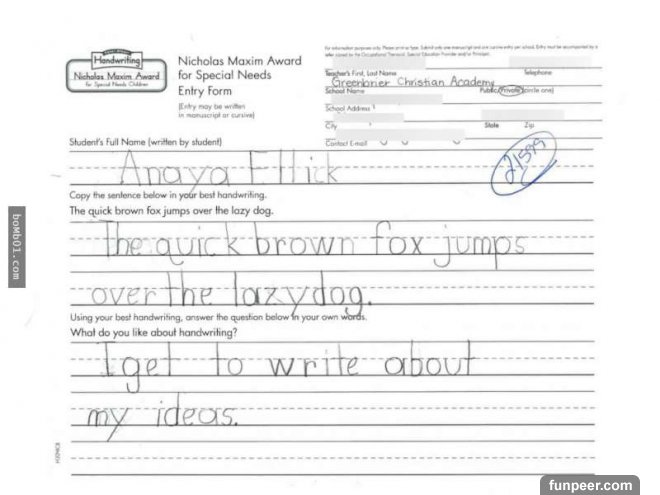 Handwriting
Nicholas Maxim Award
for Special Needs Children
Nicholas Maxim Award
for Special Needs
Entry Form
(Entry may be written
in manuscript or cursive)
Teacher's First, Last Name
Telephone
Greenbrier Christian Academy
School Name
Public/Private (circle one)
School Address
City
State
Zip
Contact E-mail
Student's Full Name (written by student)
Anaya Ellick
21599
Copy the sentence below in your best handwriting.
The quick brown fox jumps over the lazy dog.
The quick brown fox jumps
over the lazy dog.
Using your best handwriting, answer the question below in your own words.
What do you like about handwriting?
I get to write about
my ideas.
boMb01.com
funpeer.com